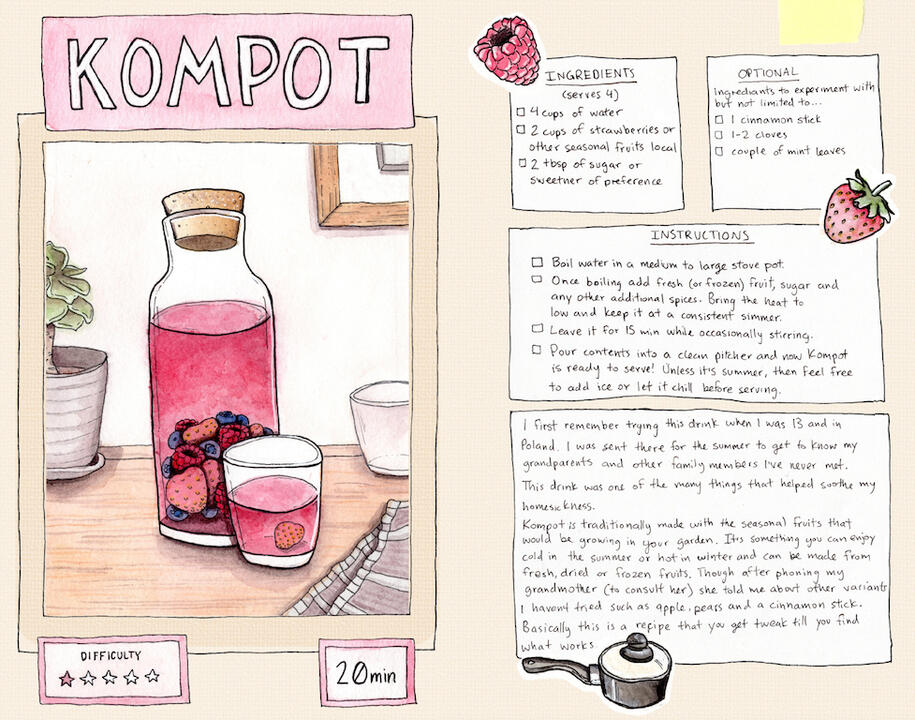 KOMPOT
DIFFICULTY
20min
INGREDIENTS
(serves 4)
4 cups of water
2 cups of strawberries or
other seasonal fruits local
2 tbsp of sugar or
sweetner of preference
OPTIONAL
Ingrediants to experiment with
but not limited to...
1 cinnamon stick
1-2 cloves
couple of mint leaves
INSTRUCTIONS
Boil water in a medium to large stove pot.
Once boiling add fresh (or frozen) fruit, sugar and
any other additional spices. Bring the heat to
low and keep it at a consistent simmer.
Leave it for 15 min while occasionally stirring.
Pour contents into a clean pitcher and now Kompot
is ready to serve! Unless it's summer, then feel free
to add ice or let it chill before serving.
I first remember trying this drink when I was 13 and in
Poland. I was sent there for the summer to get to know my
grandparents and other family members I've never met.
This drink was one of the many things that helped soothe my
homesickness.
Kompot is traditionally made with the seasonal fruits that
would be growing in your garden. It's something you can enjoy
cold in the summer or hot in winter and can be made from
fresh, dried or frozen fruits. Though after phoning my
grandmother (to consult her) she told me about other variants
I haven't tried such as apple, pears and a cinnamon stick.
Basically this is a recipe that you get tweak till you find
what works